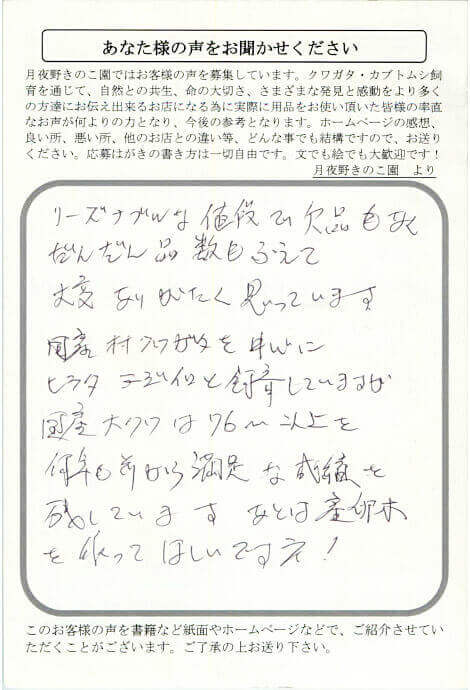 あなた様の声をお聞かせください
月夜野きのこ園ではお客様の声を募集しています。クワガタ・カブトムシ飼
育を通じて、自然との共生、命の大切さ、さまざまな発見と感動をより多く
の方達にお伝え出来るお店になる為に実際に用品をお使い頂いた皆様の率直
なお声が何よりの力となり、今後の参考となります。ホームページの感想、
良い所、悪い所、他のお店との違い等、どんな事でも結構ですので、お送り
ください。応募はがきの書き方は一切自由です。文でも絵でも大歓迎です！
月夜野きのこ園　より
リーズナブルな値段で欠品もなく
だんだん品数もふえて
大変ありがたく思っています
国産オオクワガタを中心に
ヒラタ
していますが
国産大クワは76㎜以上を
何年も前から満足な成績を
残しています あとは産卵木
を作ってほしいですネ！
このお客様の声を書籍など紙面やホームページなどで、ご紹介させてい
ただくことがございます。ご了承の上お送り下さい。